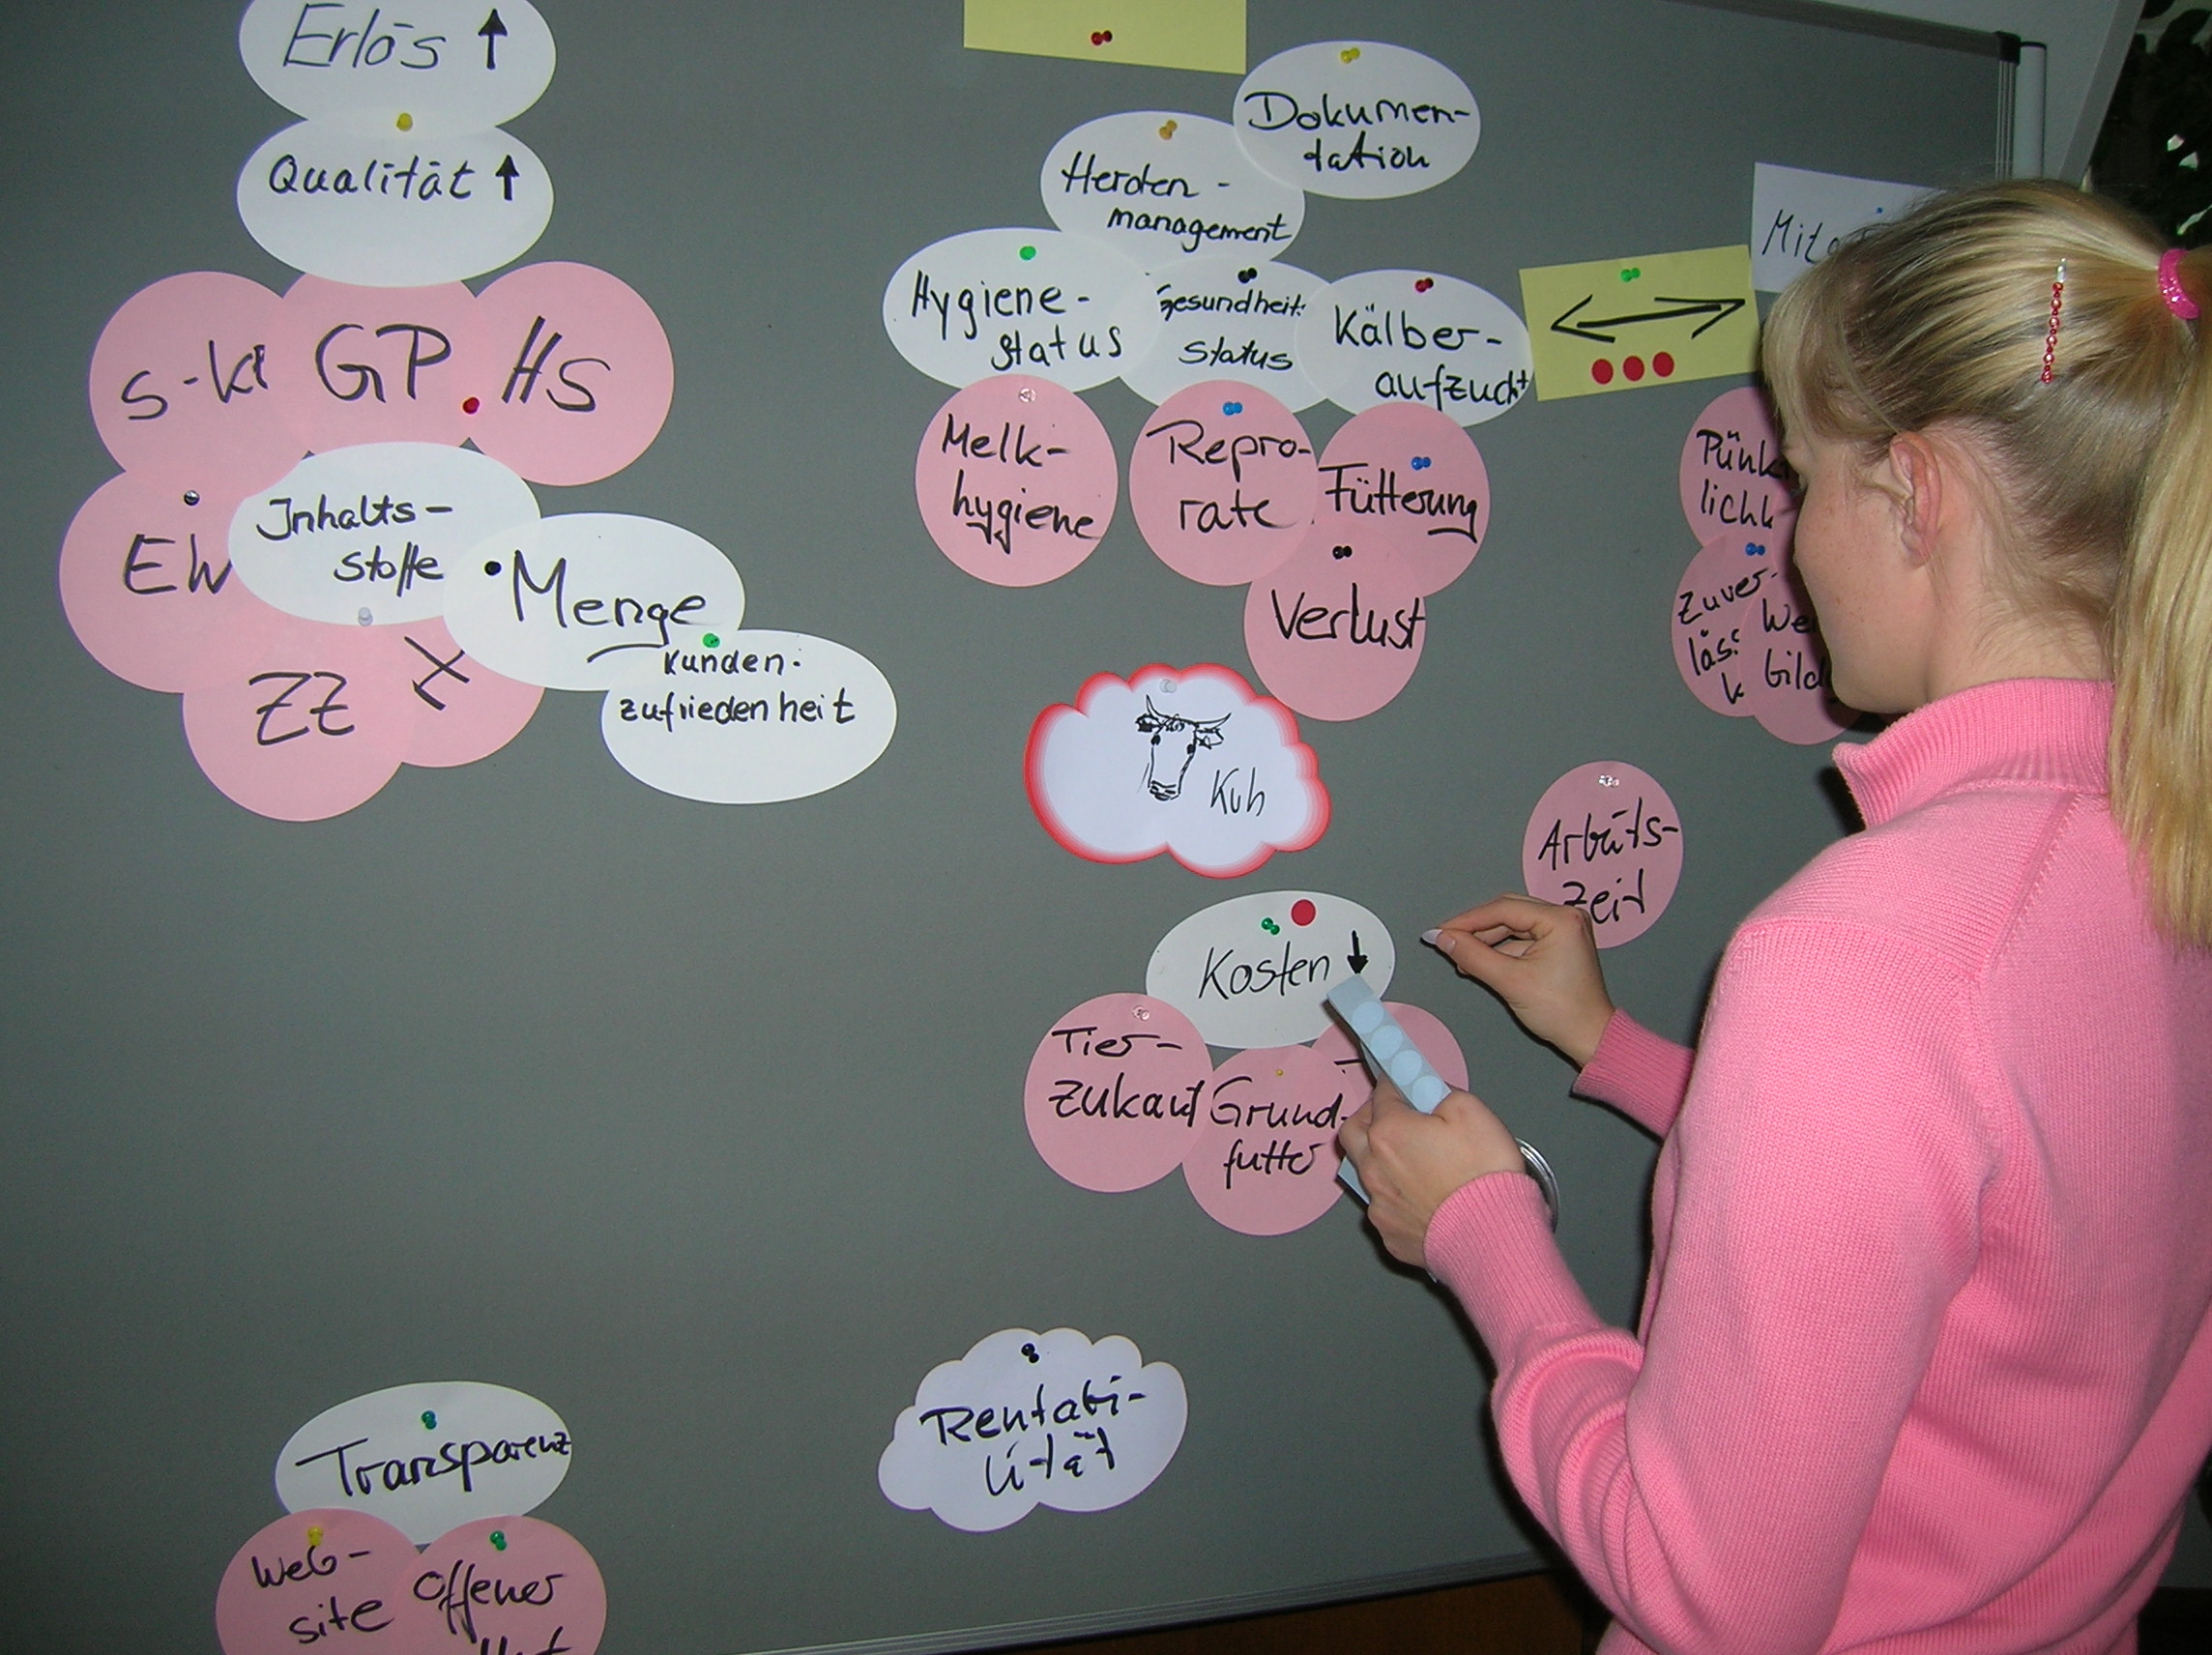 Erlös ↑
Qualität ↑
S-Kl
GP
HS
EW
Inhalts-
stoffe
Menge
ZZ
Kunden-
zufriedenheit
Dokumen-
tation
Herden-
management
Hygiene-
status
Gesundheits
status
Kälber-
aufzucht
Melk-
hygiene
Repro-
rate
Fütterung
Verlust
Kuh
Pünk
lichk
Zuver-
läss
k
We
bild
Arbeits-
zeit
Kosten ↓
Tier-
zukauf
Grund-
futter
Rentabi-
lität
Transparenz
Web-
site
Offener